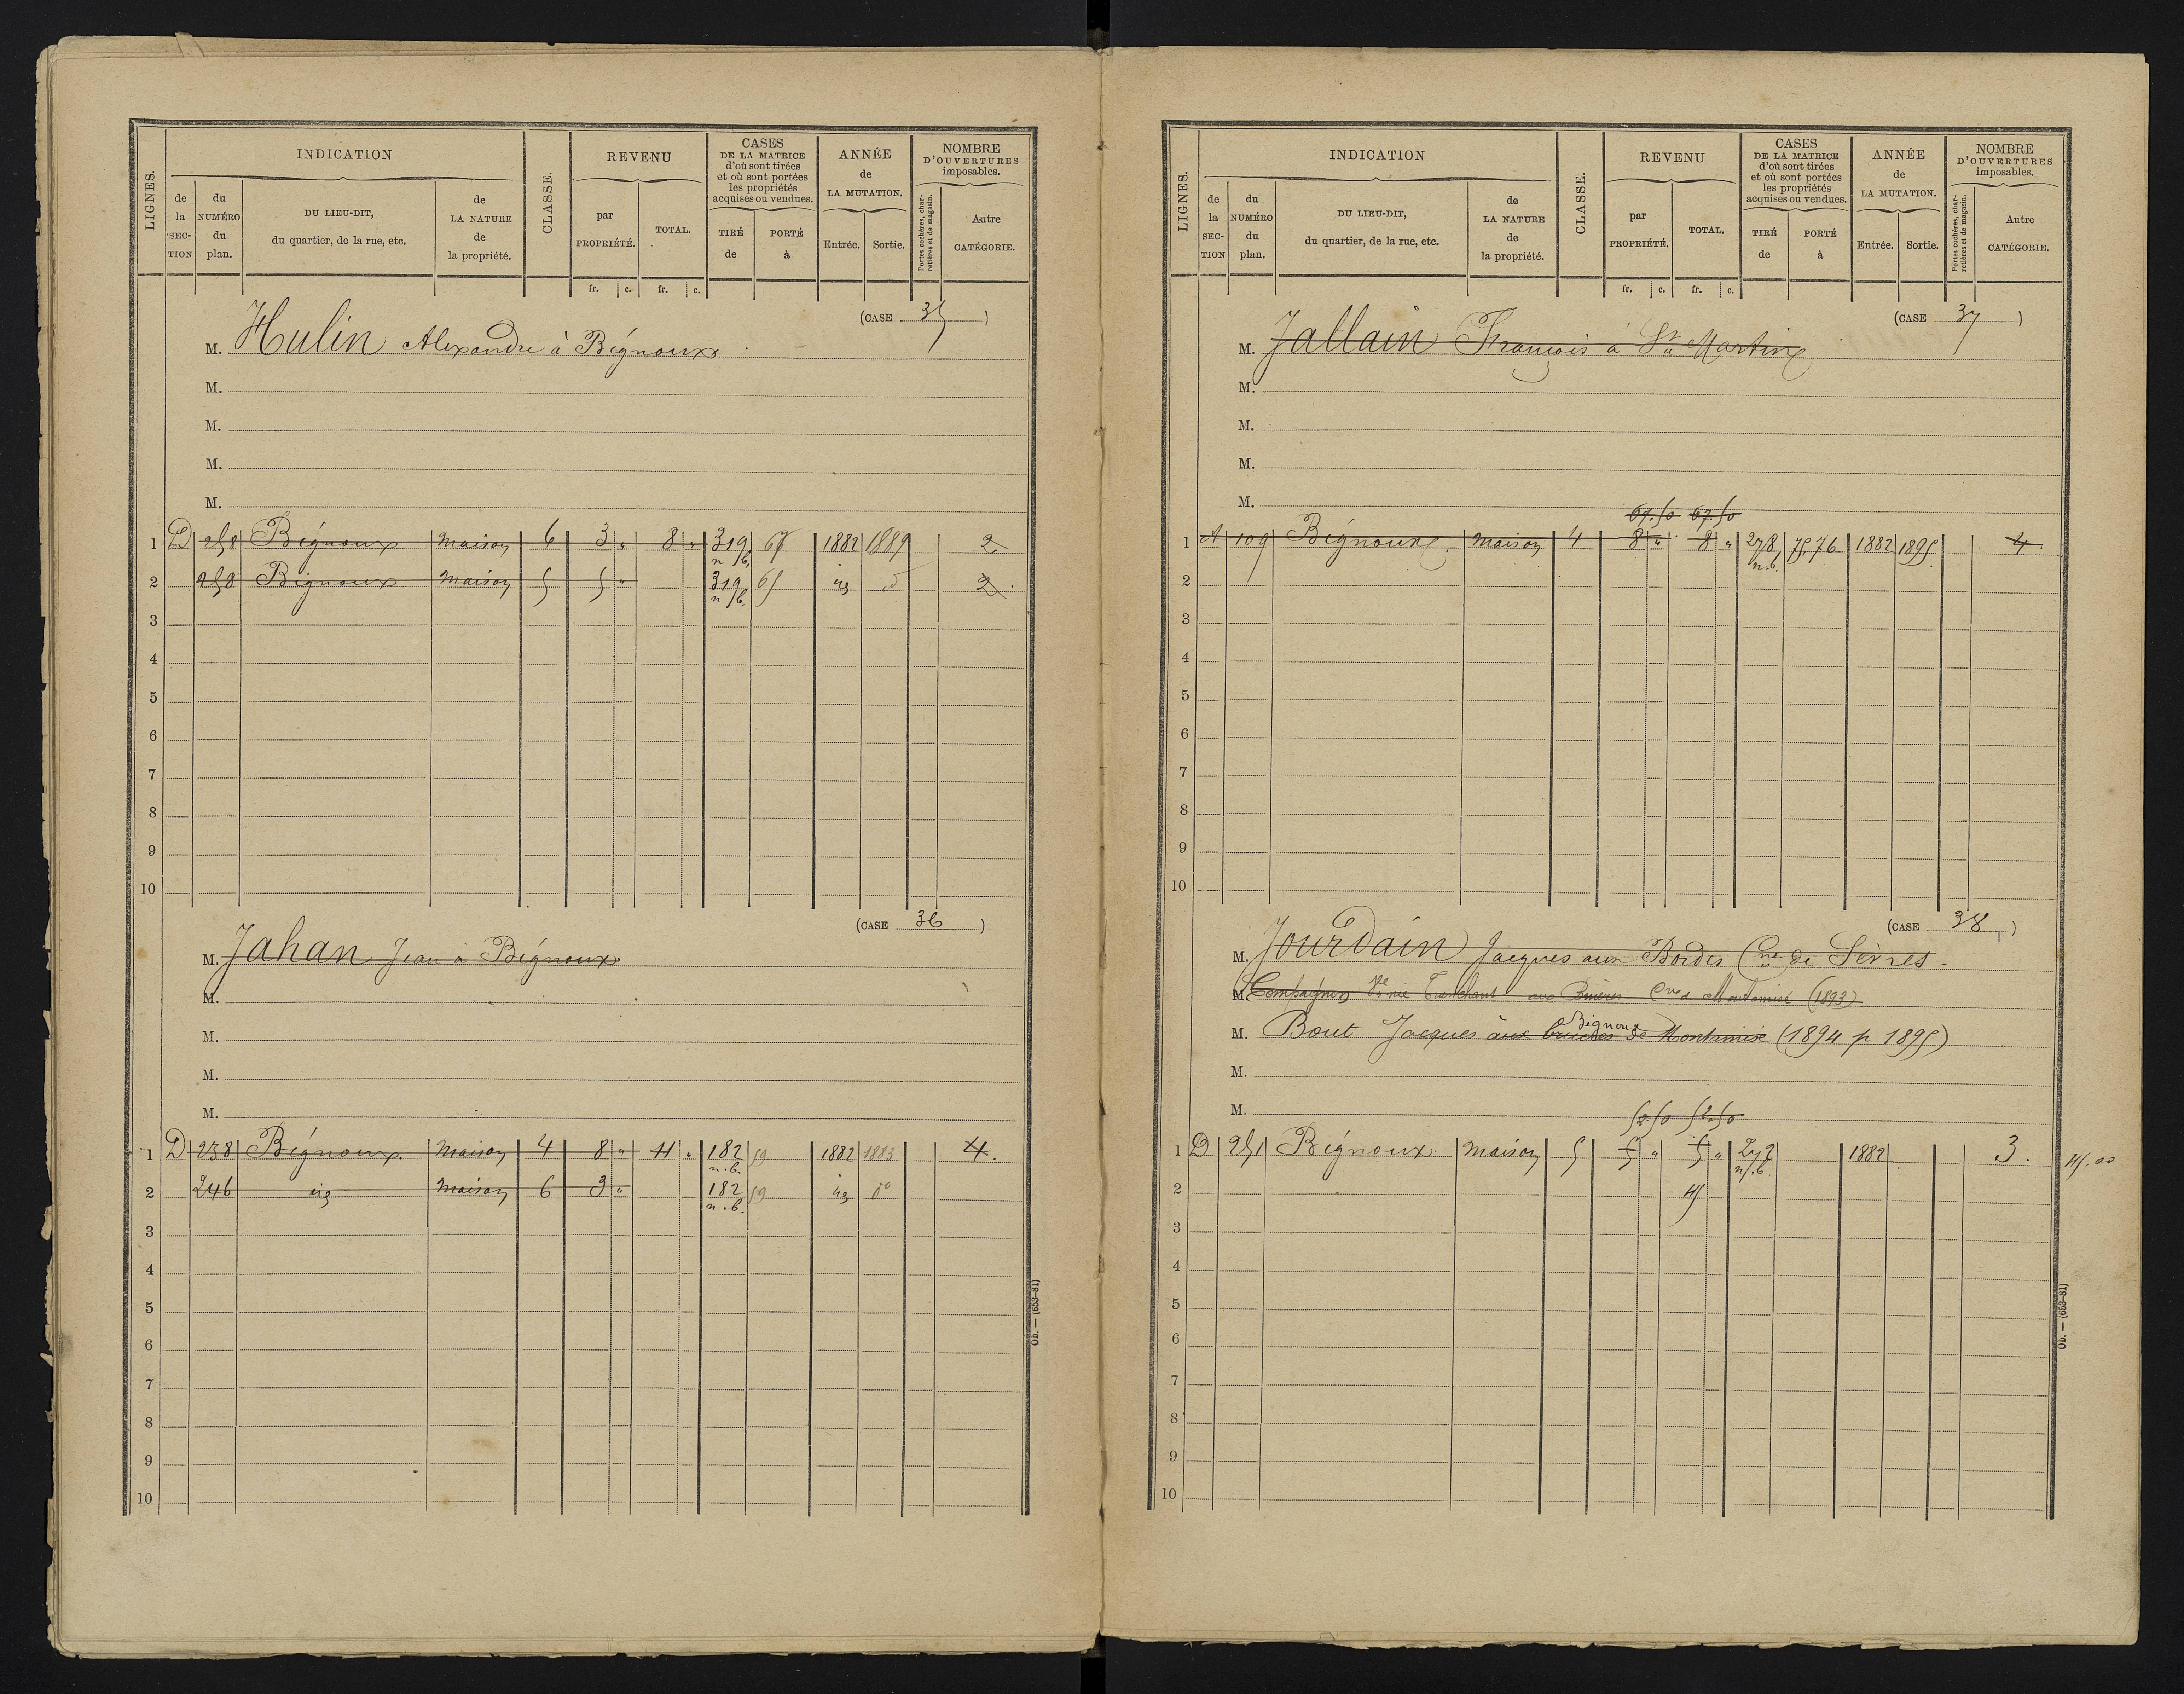 LIGNES.
INDICATION
CLASSE.
REVENU
CASES
DE LA MATRICE
d'où sont tirées
et où sont portées
les propriétés
acquises ou vendues.
ANNÉE
de
LA MUTATION.
NOMBRE
D'OUVERTURES
imposables.
de la SECTION
du NUMÉRO du plan.
DU LIEU-DIT,
du quartier, de la rue, etc.
de LA NATURE de la propriété.
par PROPRIÉTÉ.
TOTAL.
TIRÉ de
PORTÉ à
Entrée.
Sortie.
Portes cochères, charretières et de magasin.
Autre CATÉGORIE.
fr. c. fr. c.
(CASE 35)
M. Hulin Alexandre à Bignoux
M.
M.
M.
M.
1 D 258 Bignoux maison 6 3 " 8 " 319 67 1882 1889 2
n/b.
2 258 Bignoux maison 5 5 " 319 65 id do 2
n/b.
3
4
5
6
7
8
9
10
(CASE 36)
M. Jahan Jean à Bignoux
M.
M.
M.
M.
1 D 238 Bignoux maison 4 8 " 11 " 182 59 1882 1883 4.
n.b.
2 246 id maison 6 3 " 182 59 id do
n.b.
3
4
5
6
7
8
9
10
Ob. — (653-81)
LIGNES.
INDICATION
CLASSE.
REVENU
CASES
DE LA MATRICE
d'où sont tirées
et où sont portées
les propriétés
acquises ou vendues.
ANNÉE
de
LA MUTATION.
NOMBRE
D'OUVERTURES
imposables.
de la SECTION
du NUMÉRO du plan.
DU LIEU-DIT,
du quartier, de la rue, etc.
de LA NATURE de la propriété.
par PROPRIÉTÉ.
TOTAL.
TIRÉ de
PORTÉ à
Entrée.
Sortie.
Portes cochères, charretières et de magasin.
Autre CATÉGORIE.
fr. c. fr. c.
(CASE 37)
M. Jallain François à St Martin
M.
M.
M.
M.
67.50 67.50
1 A 109 Bignoux maison 4 8 " 8 " 278 75.76 1882 1895 4
n.b.
2
3
4
5
6
7
8
9
10
(CASE 38)
M. Jourdain Jacques aux Bordes Cne de Sèvres
M. Compagnon Vve née Tranchant aux Bruères Cne d Montamisé (1893)
Bignoux
M. Bout Jacques aux bruères de Montamisé (1894 p 1895)
M.
M.
52.50 52.50
1 D 251 Bignoux maison 5 5 " 5 " 272 1882 3. 45.00
n/.b.
2 45
3
4
5
6
7
8
9
10
Ob. — (653-81)